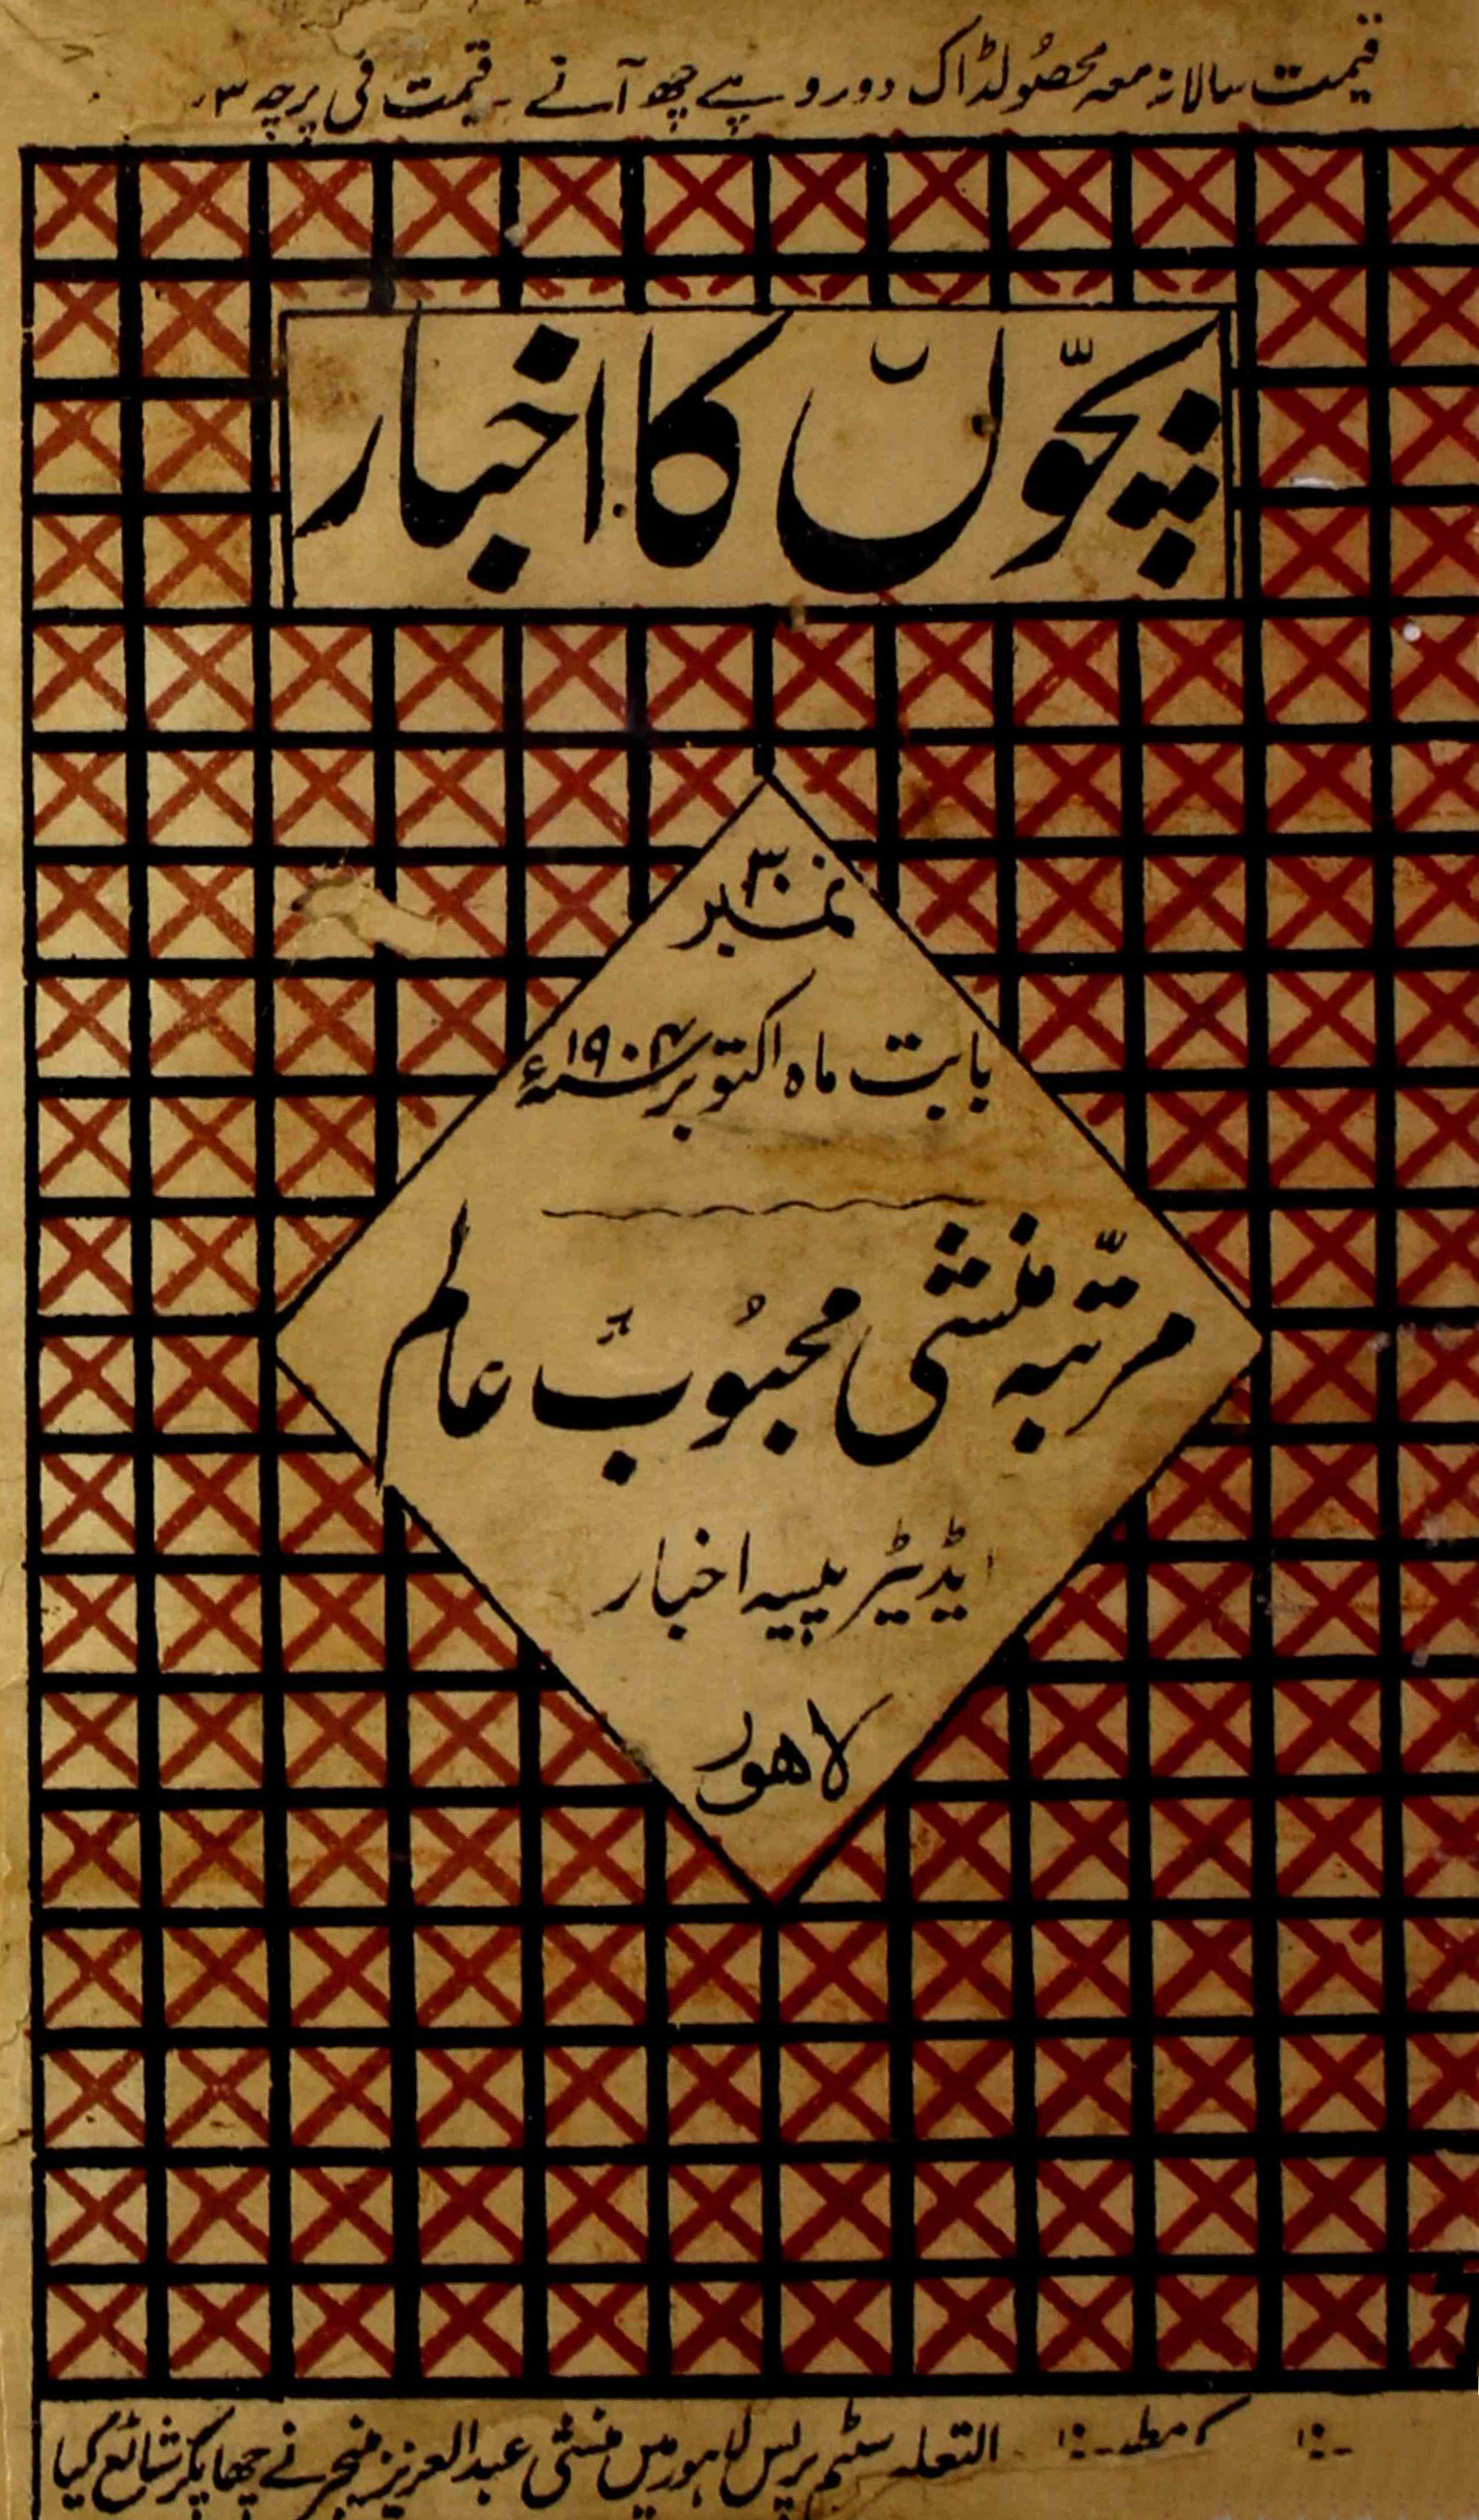 قیمت سالانہ معہ محصُولڈاک دو روپے چھ آنے ۔ قیمت فی پرچہ ۳؍
بچّوں کا اخبار
نمبر ۳۰
بابت ماہ اکتوبر ۱۹۰۴ء
مرتّبہ منشی محبُوب عالم
ایڈیٹر پیسہ اخبار
لاھور
سٹیم پریس لاہور میں منشی عبدالعزیز منیجر نے چھاپکر شائع کیا